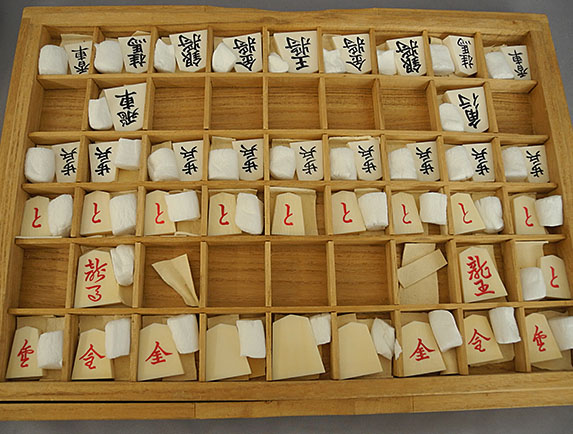 香車 桂馬 銀将 金将 王将 金将 銀将 桂馬 香車
飛車 角行
歩兵 歩兵 歩兵 歩兵 歩兵 歩兵 歩兵 歩兵 歩兵
と と と と と と と と と
龍馬 龍王 と
金 金 金